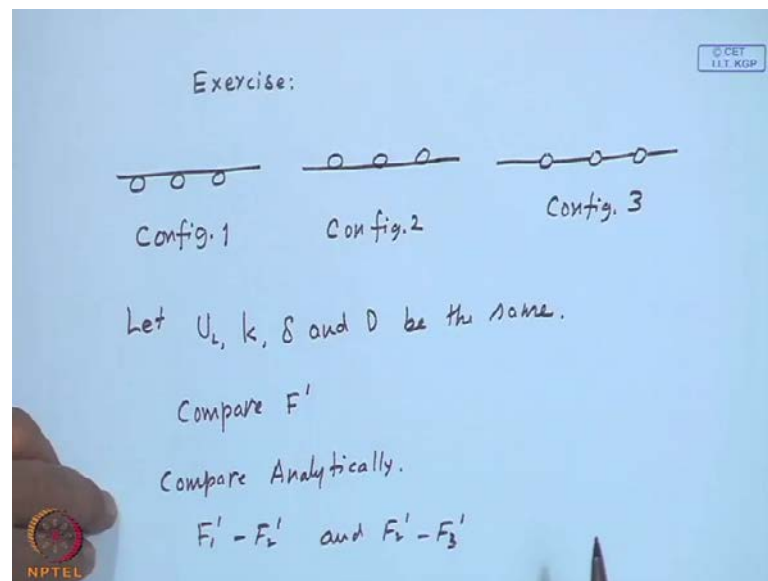 © CET
I.I.T. KGP
Exercise:
Config. 1
Config. 2
Config. 3
Let U_L, k, δ and D be the same.
Compare F'
Compare Analytically.
F₁' - F₂' and F₂' - F₃'
NPTEL